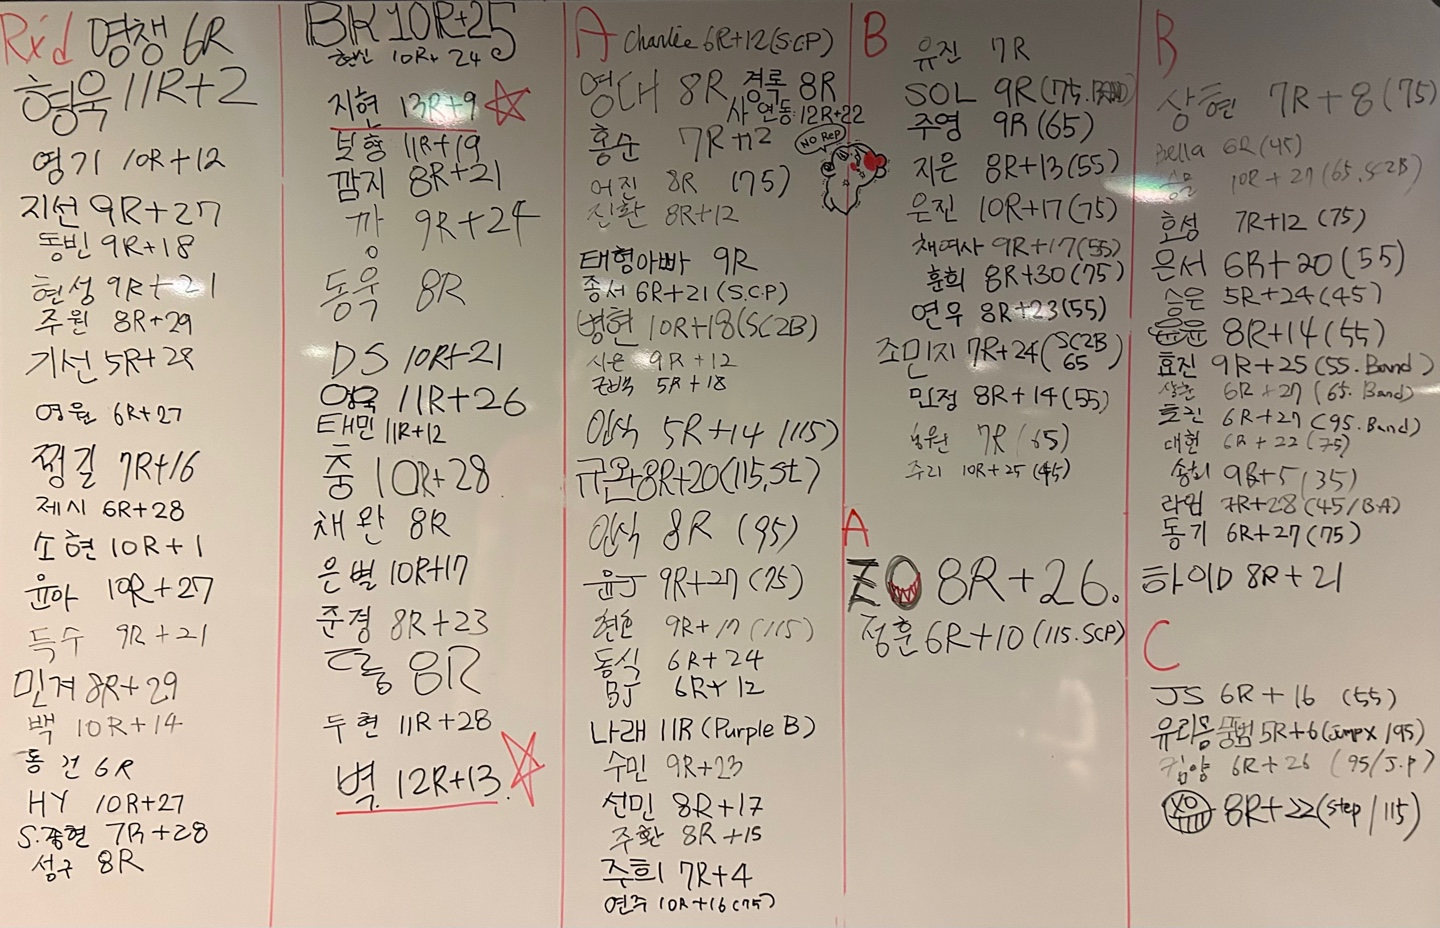 Rx'd 명쟁 6R
형욱 11R+2
영기 10R+12
지선 9R+27
동빈 9R+18
현성 9R+21
주원 8R+29
기선 5R+28
영월 6R+27
쩡길 7R+16
제시 6R+28
소현 10R+1
윤아 10R+27
득수 9R+21
민겨 8R+29
백 10R+14
동건 6R
HY 10R+27
S.종현 7R+28
성구 8R
BK 10R+25
현빈 10R+24
지현 13R+9
보형 11R+19
깜지 8R+21
깡 9R+24
동욱 8R
DS 10R+21
영욱 11R+26
태민 11R+12
중 10R+28
채완 8R
은별 10R+17
준경 8R+23
8R
두현 11R+28
별. 12R+13.
A Charlie 6R+12(S.C.P)
영대 8R 경록 8R
사연동 12R+22
홍순 7R+12
NO REP
어진 8R (75)
진환 8R+12
태형아빠 9R
종서 6R+21(S.C.P)
병현 10R+18(SC2B)
시은 9R+12
5R+18
인식 5R+14 (115)
규온 8R+20(115,St)
인식 8R (95)
윤J 9R+27 (75)
현호 9R+17 (115)
동식 6R+24
BJ 6R+12
나래 11R (Purple B)
수민 9R+23
선민 8R+17
주환 8R+15
주희 7R+4
연주 10R+16(75)
B 유진 7R
SOL 9R(75.
주영 9R(65)
지은 8R+13(55)
은진 10R+17(75)
채여사 9R+17(55)
훈희 8R+30(75)
연우 8R+23(55)
조민지 7R+24(SC2B 65
민정 8R+14(55)
7R (65)
주리 10R+25(45)
A
ZO 8R+26.
정훈 6R+10(115.SCP)
B
상현 7R+8(75)
Bella 6R(45)
10R+27(65.SC2B)
호성 7R+12 (75)
은서 6R+20(55)
승은 5R+24(45)
윤윤 8R+14(55)
효진 9R+25(55.Band)
6R+27(65.Band)
효진 6R+27(95.Band)
대현 6R+22(75)
송희 9R+5(35)
라임 7R+28(45/BA)
동기 6R+27(75)
하이D 8R+21
C
JS 6R+16 (55)
유리몸 뭉범 5R+6(JumpX 195)
김양 6R+26 (95/J.P)
XO 8R+22(step/115)